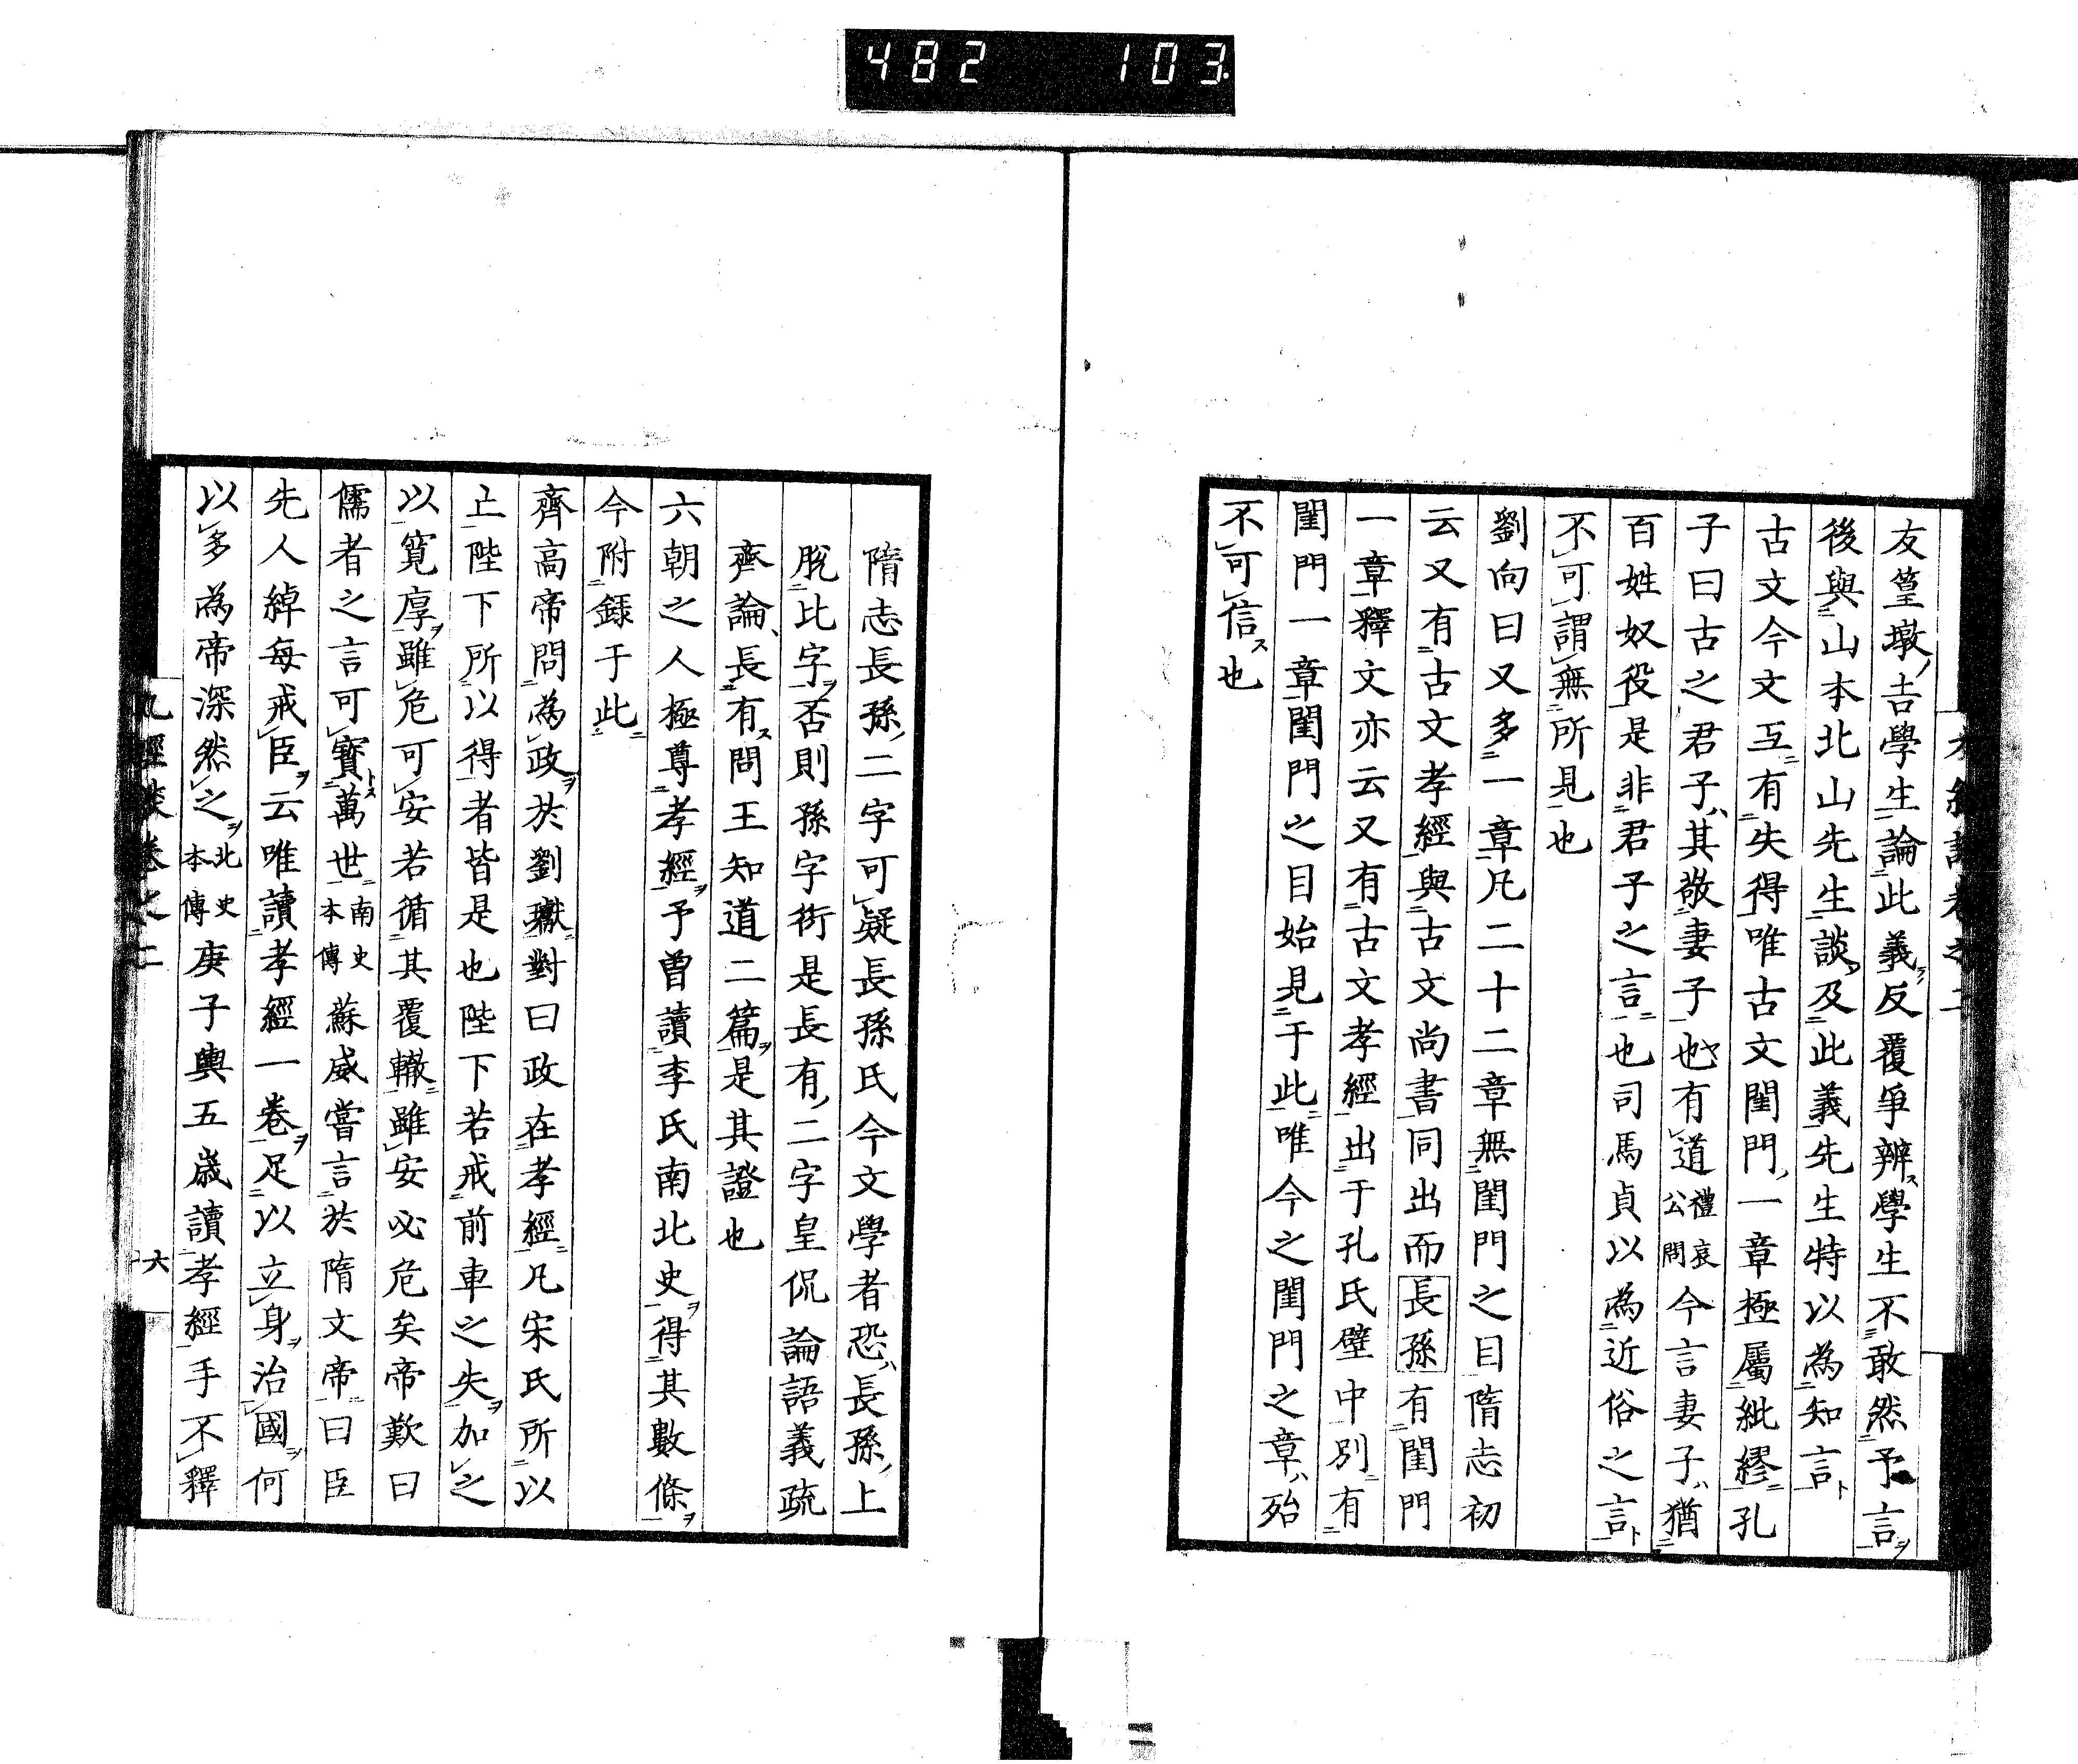 482 103
友篁墩吉學生論此義反覆爭辨學生不敢然予言
後與山本北山先生談及此義先生特以為知言
古文今文互有失得唯古文閨門一章極屬紕繆孔
子曰古之君子其敬妻子也有道禮哀公問今言妻子猶
百姓奴役是非君子之言也司馬貞以為近俗之言
不可謂無所見也
劉向曰又多一章凡二十二章無閨門之目隋志初
云又有古文孝經與古文尚書同出而長孫有閨門
一章釋文亦云又有古文孝經出于孔氏壁中別有
閨門一章閨門之目始見于此唯今之閨門之章殆
不可信也
隋志長孫二字可疑長孫氏今文學者恐長孫上
脫比字否則孫字衍是長有二字皇侃論語義疏
齊論長有問王知道二篇是其證也
六朝之人極尊孝經予曾讀李氏南北史得其數條
今附錄于此
齊高帝問為政於劉瓛對曰政在孝經凡宋氏所以
亡陛下所以得者皆是也陛下若戒前車之失加之
以寬厚雖危可安若循其覆轍雖安必危矣帝歎曰
儒者之言可寶萬世南史本傳蘇威嘗言於隋文帝曰臣
先人綽每戒臣云唯讀孝經一卷足以立身治國何
以多為帝深然之北史本傳庾子輿五歲讀孝經手不釋
九經談卷之二
六